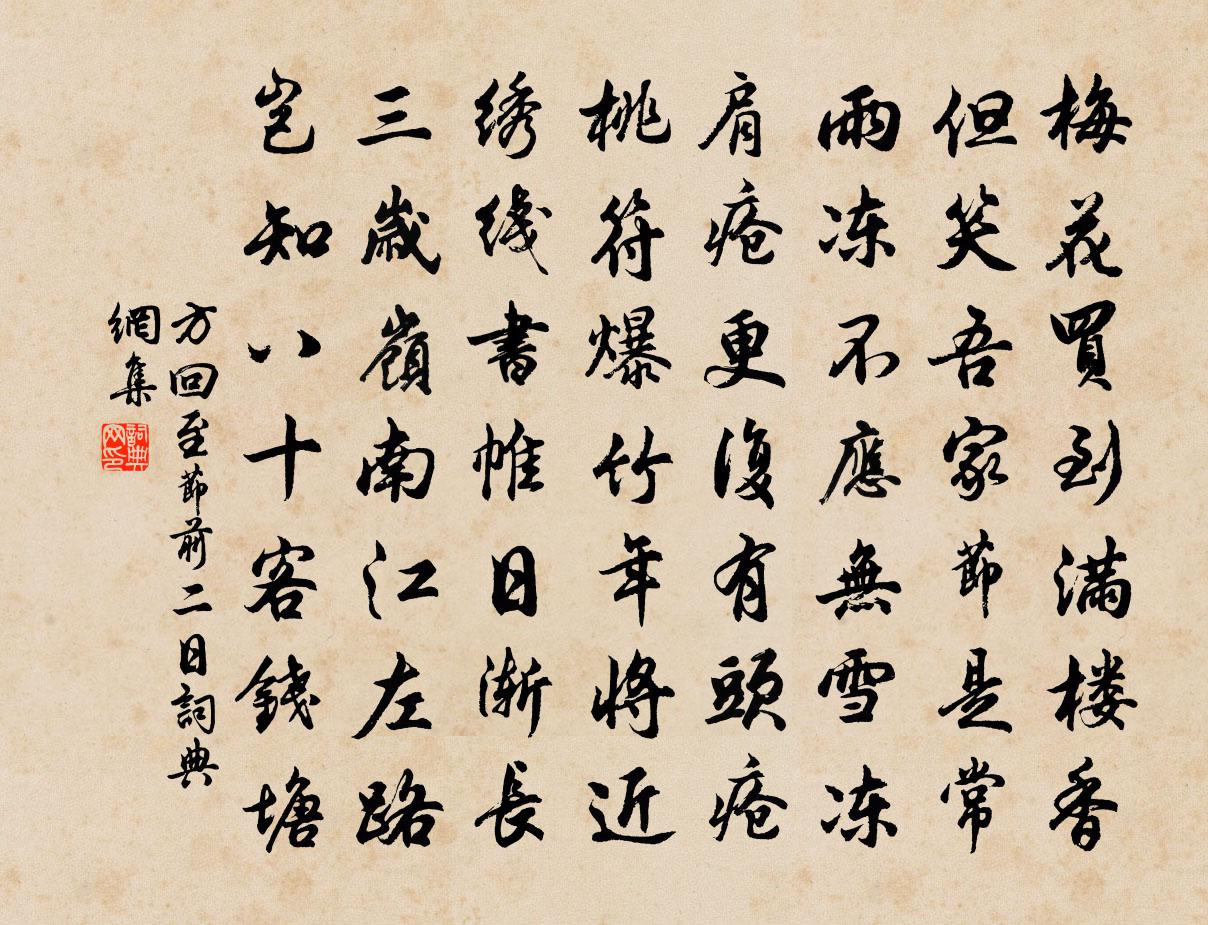 梅花買到满楼香
但笑吾家節是常
雨冻不應無雪冻
肩疮更復有頭疮
桃符爆竹年将近
绣线書帷日渐長
三歲嶺南江左路
岂知八十客錢塘
方回至節前二日詞典
網集
詞典
网印